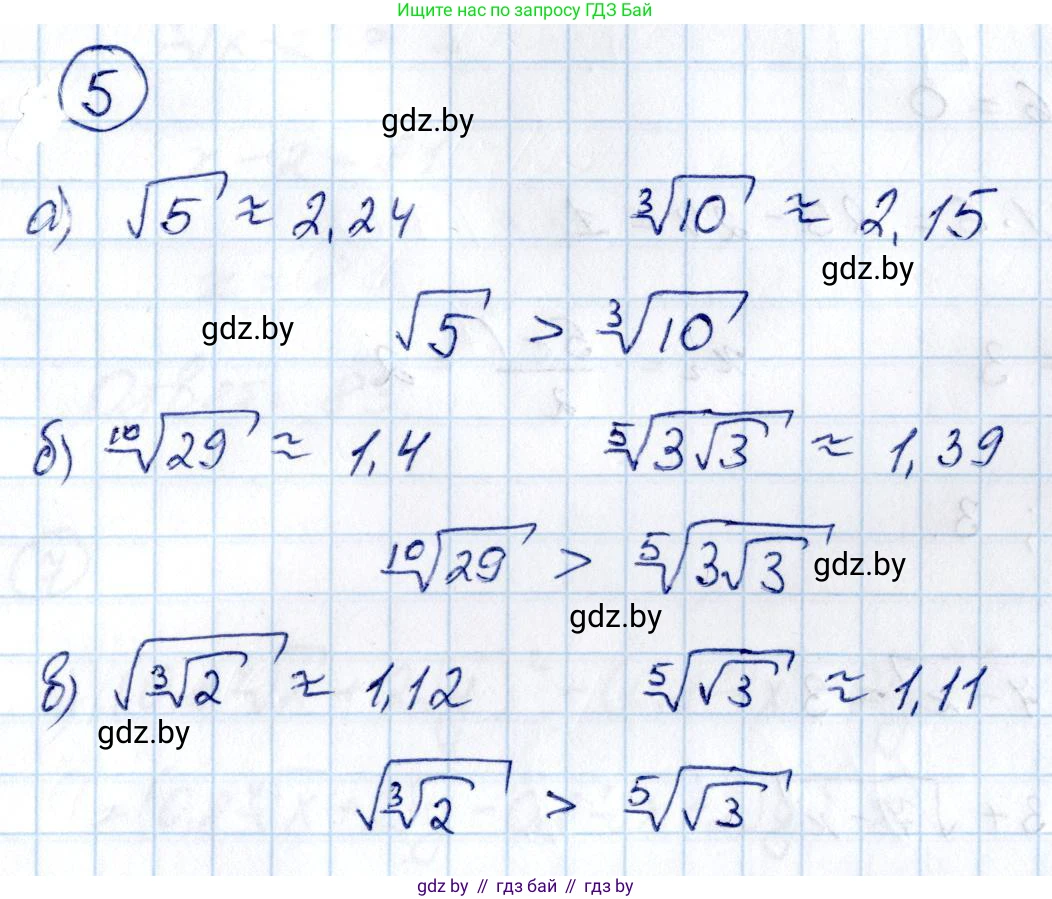 Ищите нас по запросу ГДЗ Бай
5
gdz.by
а) √5 ≈ 2,24 ∛10 ≈ 2,15
gdz.by
gdz.by
√5 > ∛10
б) ¹⁰√29 ≈ 1,4 ⁵√(3√3) ≈ 1,39
¹⁰√29 > ⁵√(3√3)
gdz.by
gdz.by
в) √(∛2) ≈ 1,12 ⁵√(√3) ≈ 1,11
gdz.by
√(∛2) > ⁵√(√3)
gdz by // гдз бай // gdz by